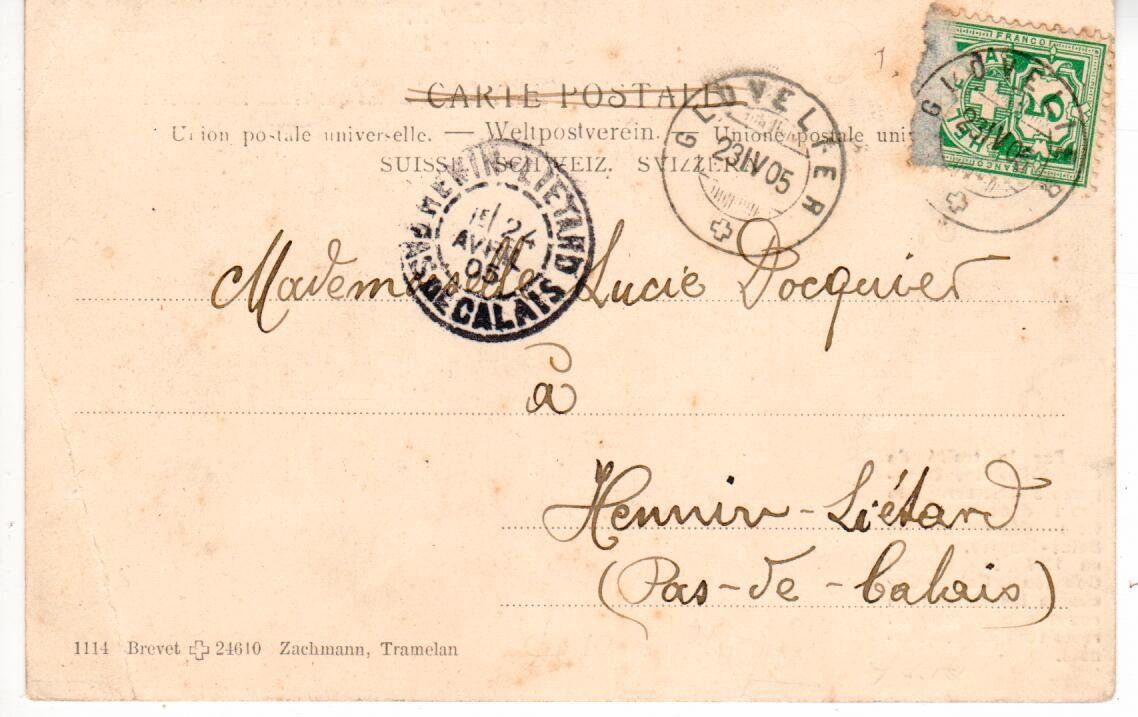 CARTE POSTALE
Union postale universelle. — Weltpostverein. — Unione postale uni
SUISSE. SCHWEIZ. SVIZZERA
GLOVELIER
23 IV 05
FRANCO
5
GLOVELIER
23 IV 05
HENIN-LIETARD
24
AVRIL
05
PAS DE CALAIS
Mademoiselle Lucie Docquier
à
Hennin-Liétard
(Pas-de-Calais)
1114 Brevet 24610 Zachmann, Tramelan